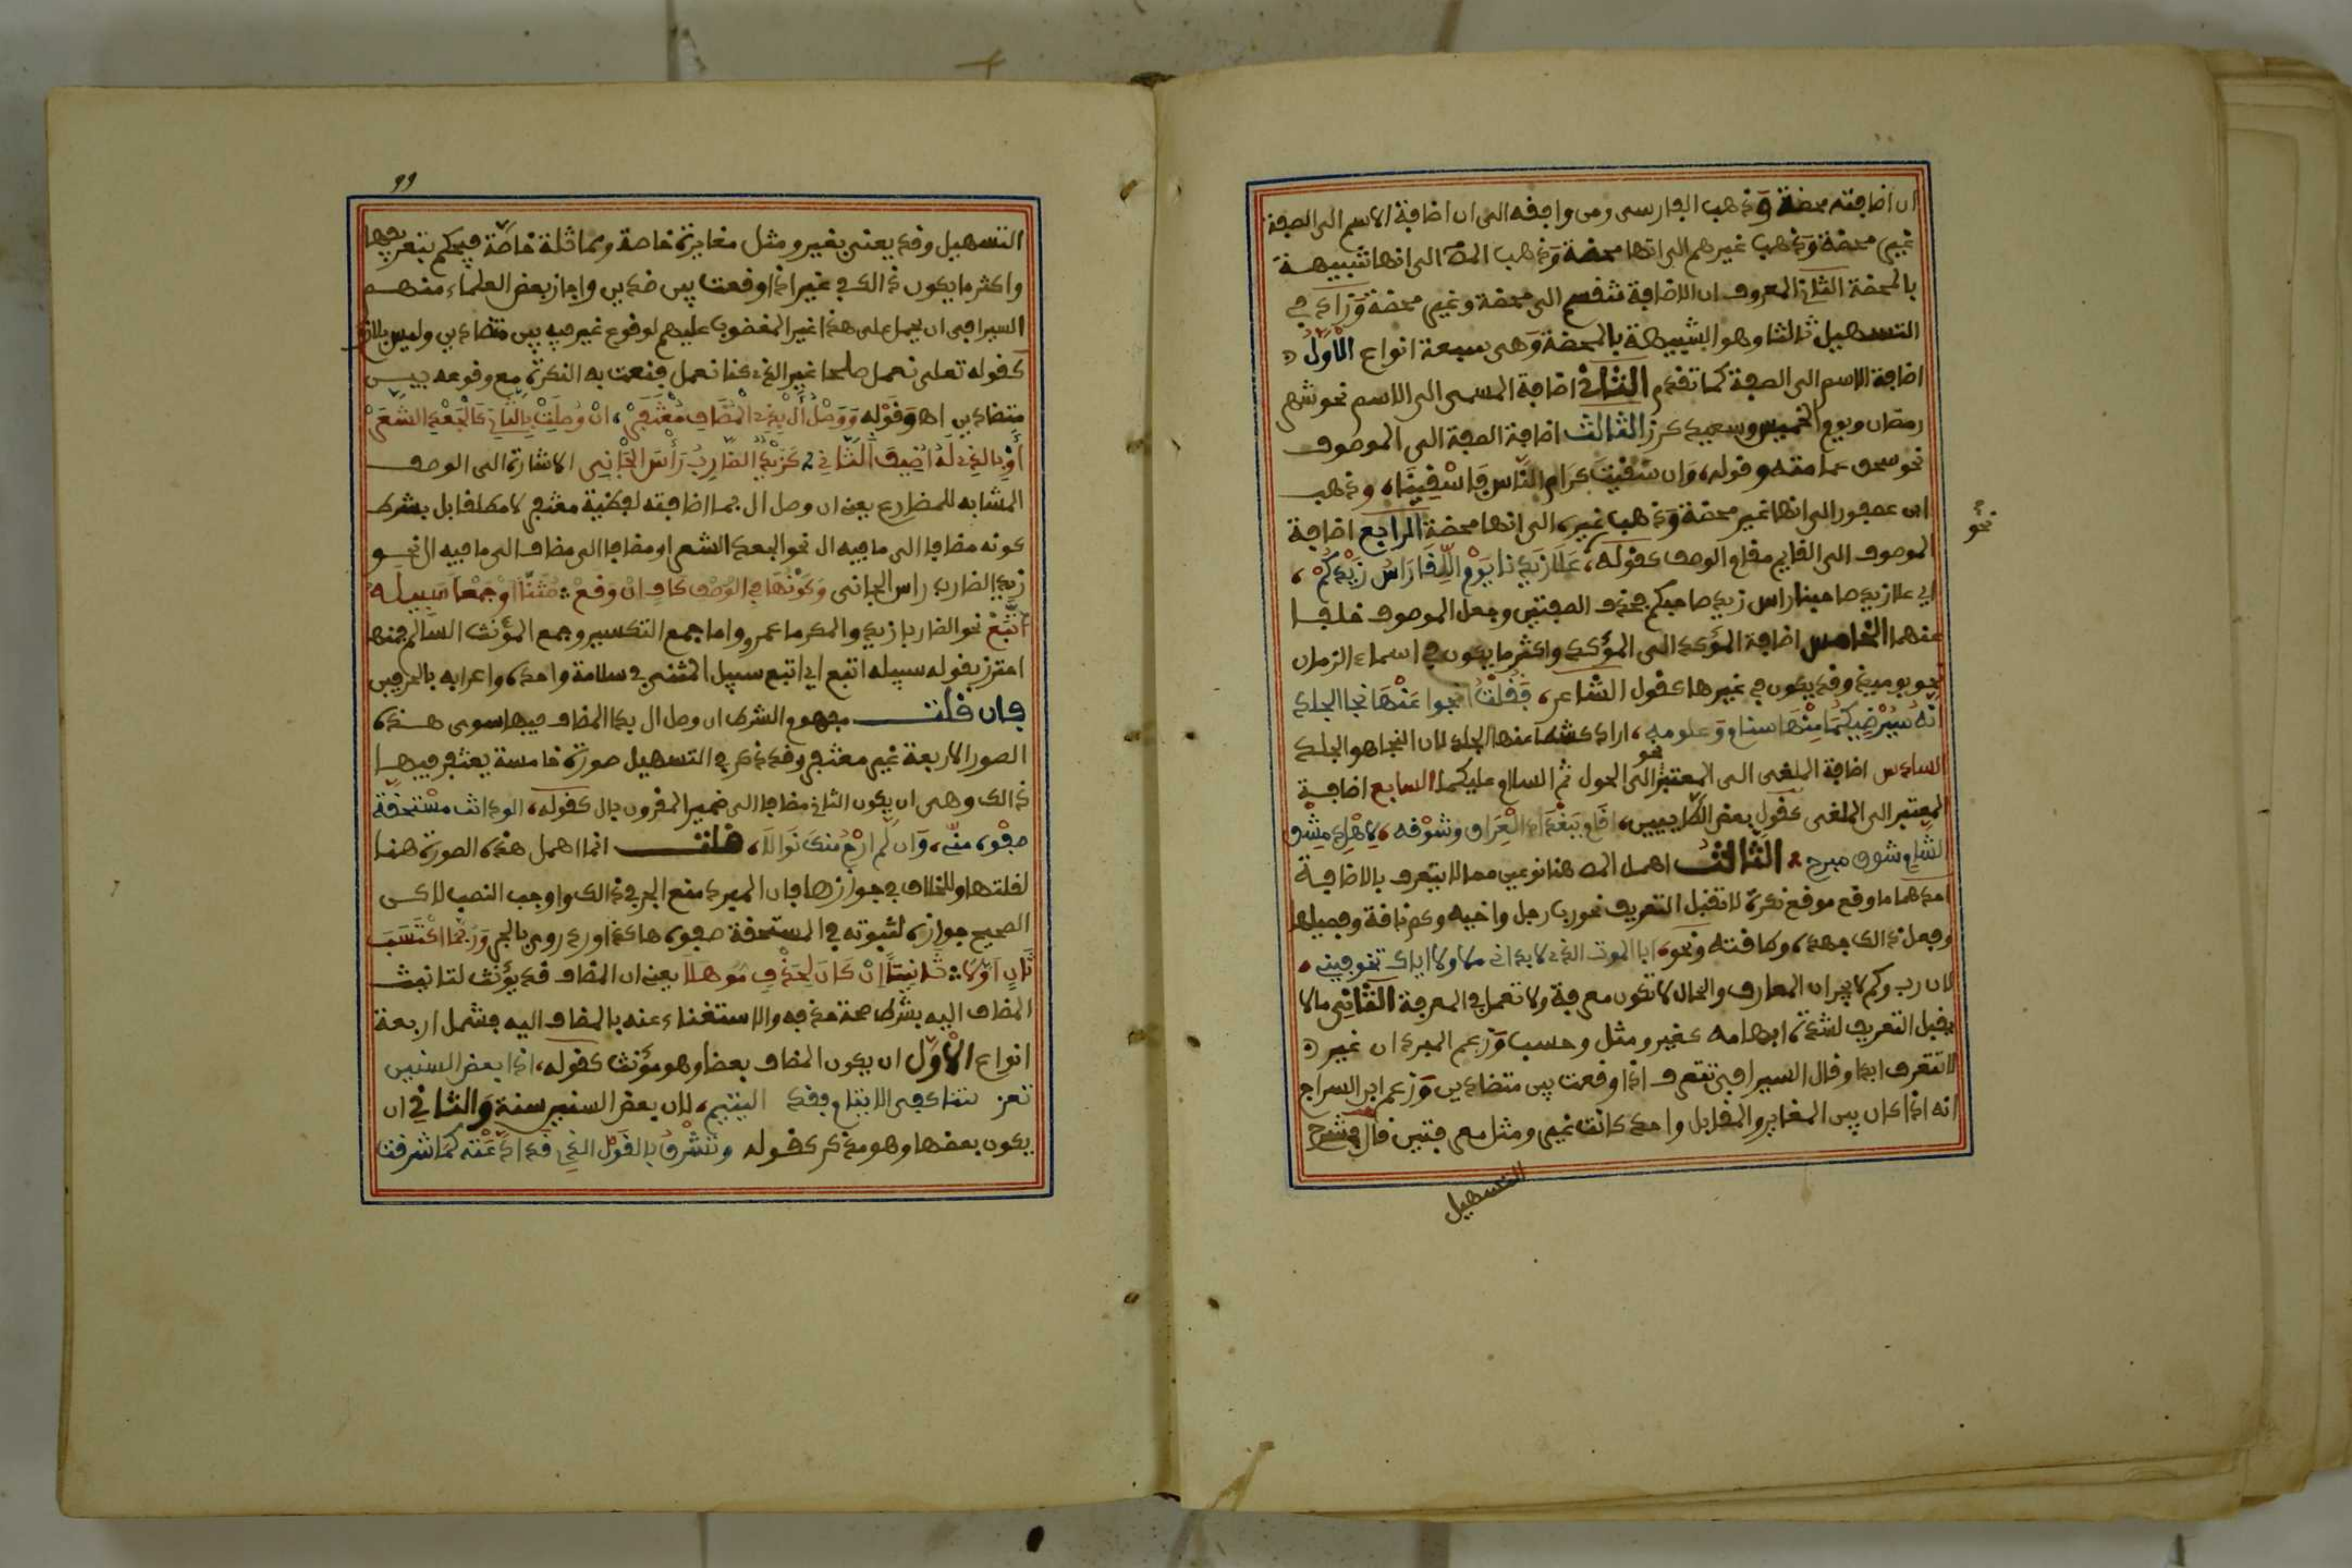 ان اضافته محضة وذهب الفارسي ومن وافقه الى ان اضافة الاسم الى الصفة
غير محضة وذهب غيرهم الى انها محضة وذهب المص الى انها شبيهة
بالمحضة الثاني المعروف ان الاضافة تنقسم الى محضة وغير محضة وزاد في
التسهيل ثالثا وهو الشبيهة بالمحضة وهي سبعة انواع الْاول
اضافة الاسم الى الصفة كما تقدم الثاني اضافة المسمى الى الاسم نحو شهر
رمضان ويوم الخميس وسعيد كرز الثالث اضافة الصفة الى الموصوف
نحو سحق عمامته وقوله، وان سقيت كرام النّاس فاسْقينَا، وذهب
ابن عصفور الى انها غير محضة وذهب غيره الى انها محضة الرابع اضافة
نحو
الموصوف الى القايم مقام الوصف كقوله، عَلَا زَيْدُنا يَوْم النَّقَا رَاسَ زَيْدِكُمْ،
اي علا زيد صاحبنا راس زيد صاحبكم فحذف الصفتين وجعل الموصوف خلفا
عنهما الخامس اضافة المؤكد الى المؤكد واكثر ما يكون في اسماء الزمان
نحو يوميذ وقد يكون في غيرها كقول الشاعر، فَقُلْتُ انجوا عَنْهَا نجا الجلد
انّه سَيُرْضِيكُمَا مِنْهَا سنام وغاربه، اراد كشطا عنها الجلد لان النجا هو الجلد
السادس اضافة الملغى الى المعتبر نحو الى الحول ثم السلام عليكما السابع اضافة
المعتبر الى الملغى كقول بعض الطاييين، اقام بِبَغْدَاد الْعِرَاق وشوْقه، لاهْل دمشْق
الشام شوق مبرح الثالث اهمل المص هنا نوعين مما لا يتعرف بالاضافة
احدهما ما وقع موقع نكرة لا تقبل التعريف نحو رب رجل واخيه وكم ناقة وفصيلها
وفعل ذالك جهده، وطاقته ونحو، ابا الموت الذي لا بد اني ملاق لا اباك تخوفيني،
لان رب وكم لا يجران المعارف والحال لا تكون معرفة ولا تعمل في المعرفة الثاني ما لا
يقبل التعريف لشدة ابهامه كغير ومثل وحسب وزعم المبرد ان غير
لا تتعرف ابدا وقال السيرافي تتعرف اذا وقعت بين متضادين وزعم ابن السراج
انه اذا كان بين المغاير والمقابل واحد كانت غير ومثل معرفتين قال في شرح
التسهيل
99
التسهيل وقد يعنى بغير ومثل مغايرة خاصة ومماثلة خاصّة فيحكم بتعريفها
واكثر ما يكون ذالك في غير اذا وقعت بين ضدين واجاز بعض العلماء منهم
السيرافي ان يحمل على هذا غير المغضوب عليهم لوقوع غير فيه بين متضادين وليس بلازم
كقوله تعلى نعمل صلحا غير الذي كنا نعمل فنعت به النكرة مع وقوعه بين
متضادين اه وقوله وَوَصْلُ أَلْ بِذِي الْمُضَافِ مُغْتَفَرْ، انْ وُصِلَتْ بِالثَّانِ كَالْجَعْدِ الشَّعَرْ
أَوْ بِالذِي لَهُ اُضِيفَ الثَّانِي كَزَيْدٌ الضَّارِبُ رَأْسِ الْجَانِي الاشارة الى الوصف
المشابه للمضارع يعني ان وصل ال بما اضافته لفظية مغتفر لا مطلقا بل بشرط
كونه مضافا الى ما فيه ال نحو الجعد الشعر او مضافا الى مضاف الى ما فيه ال نحو
زيد الضارب راس الجاني وَكَوْنُهَا فِي الْوَصْفِ كَافٍ انْ وَقَعْ مُثَنًّا اوْ جَمْعًا سَبِيلَهُ
اتَّبَعْ نحو الضاربا زيد والمكرموا عمرو واما جمع التكسير وجمع المؤنث السالم فمنها
احترز بقوله سبيله اتبع اي اتبع سبيل المثنى في سلامة واحده واعرابه بالحرفين
فان قلت مفهوم الشرط ان وصل ال بذا المضاف فيما سوى هذه
الصور الاربعة غير مغتفر وقد ذكر في التسهيل صورة خامسة يغتفر فيها
ذالك وهي ان يكون الثاني مضافا الى ضمير المقرون بال كقوله، الود انت مسْتحقّة
صفْوه منّي، وَان لَّم ارْجُ منك نَوَالَا، قلت انما اهمل هذه الصورة هنا
لقلتها وللخلاف في جوازها فان المبرد منع الجر في ذالك واوجب النصب لاكن
الصحيح جوازه لثبوته في المستحقة صفوه هاكذا ورد روي بالجر وَرُبَّمَا اكْتَسَبَ
ثَانٍ اَوَّلَا تَانِيثًا انْ كَانَ لِحَذْفٍ مُوهَلَا يعني ان المضاف قد يؤنث لتانيث
المضاف اليه بشرط صحة حذفه والاستغناء عنه بالمضاف اليه فشمل اربعة
انواع الْاول ان يكون المضاف بعضا وهو مؤنث كقوله، اذا بعض السنين
تعرقتنا كفى الايتام فقد اليتيم، لان بعض السنين سنة والثاني ان
يكون بعضها وهو مذكر كقوله وتَشْرقُ بالقَوْل الذي قد اذَعْته كمَا شرقت